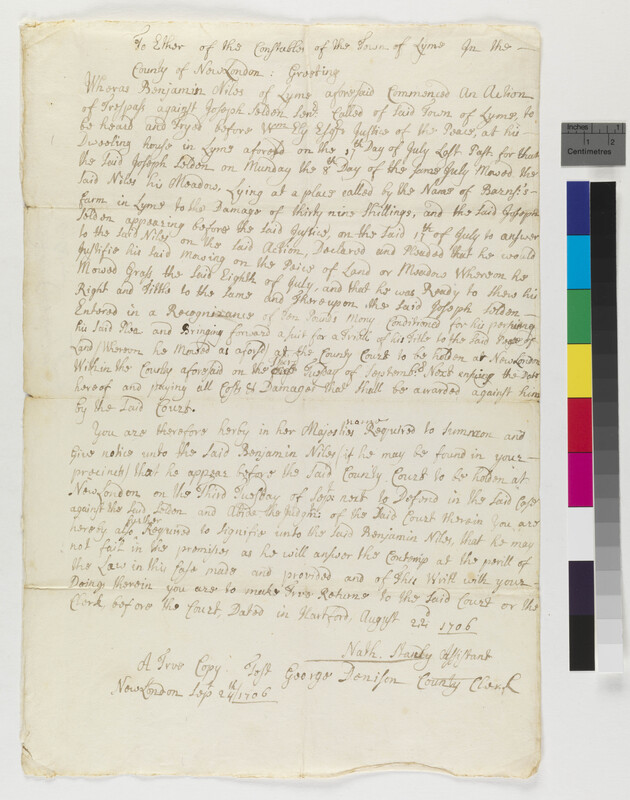 To Ether of the Constables of the Town of Lyme In the
County of NewLondon: Greeting
Wheras Benjamin Niles of Lyme aforesaid Commenced An Action
of Trespass against Joseph Selden Senr Called of said Town of Lyme, to
be heard and Tryed before Wm Ely Esqr Justice of the Peace, at his
Dwelling house in Lyme aforesd on the 17th Day of July Last Past for that
the said Joseph Selden on Munday the 8th Day of the same July Mowed the
said Niles his Meadow, Lying at a place called by the Name of
farm in Lyme to the Damage of thirty nine Shillings, and the said Joseph
Selden appearing before the said Justice, on the said 17th of July to answer
to the said Niles on the said Action, Declared and Pleaded that he would
Justifie his said Mowing on the Peice of Land or Meadow Wheron he
Mowed Grass the said Eighth of July, and that he was Ready to shew his
Right and Tittle to the same and thereupon the said Joseph Selden
Entered in a Recognizance of Ten Pounds Mony Conditioned for his
his said Plea and Bringing forward a suit for a Tryal of his Title to the said Peice of
Land (Wherron he Mowed as aforsd) at the County Court to be holden at NewLondon
Within the County aforesaid on the third Tuesday of Septembr Next ensuing the Date
hereof and paying all Costs & Damages that shall be awarded against him
by the said Court.
You are therefore herby in her Majesties name Required to summon and
give notice unto the said Benjamin Niles (if he may be found in your
precincts) that he appear before the said County Court to be holden at
NewLondon on the Third Tuesday of Sepr next to Defend in the said Case
against the said Selden and abide the Judgmt of the said Court therein You are
hereby also further Required to signifie unto the said Benjamin Niles, that he may
not fail in the premises as he will answer the Contempt at the perill of
the Law in this Case made and provided and of this Writt with your
Doings therein you are to make True Return to the said Court or the
Clerk, before the Court, Dated in Hartford August 22d 1706
Nath. Stanly Assistant
A True Copy: Test George Denison County Clerk
NewLondon Sepr 24th/1706
Inches
1
2
Centimetres